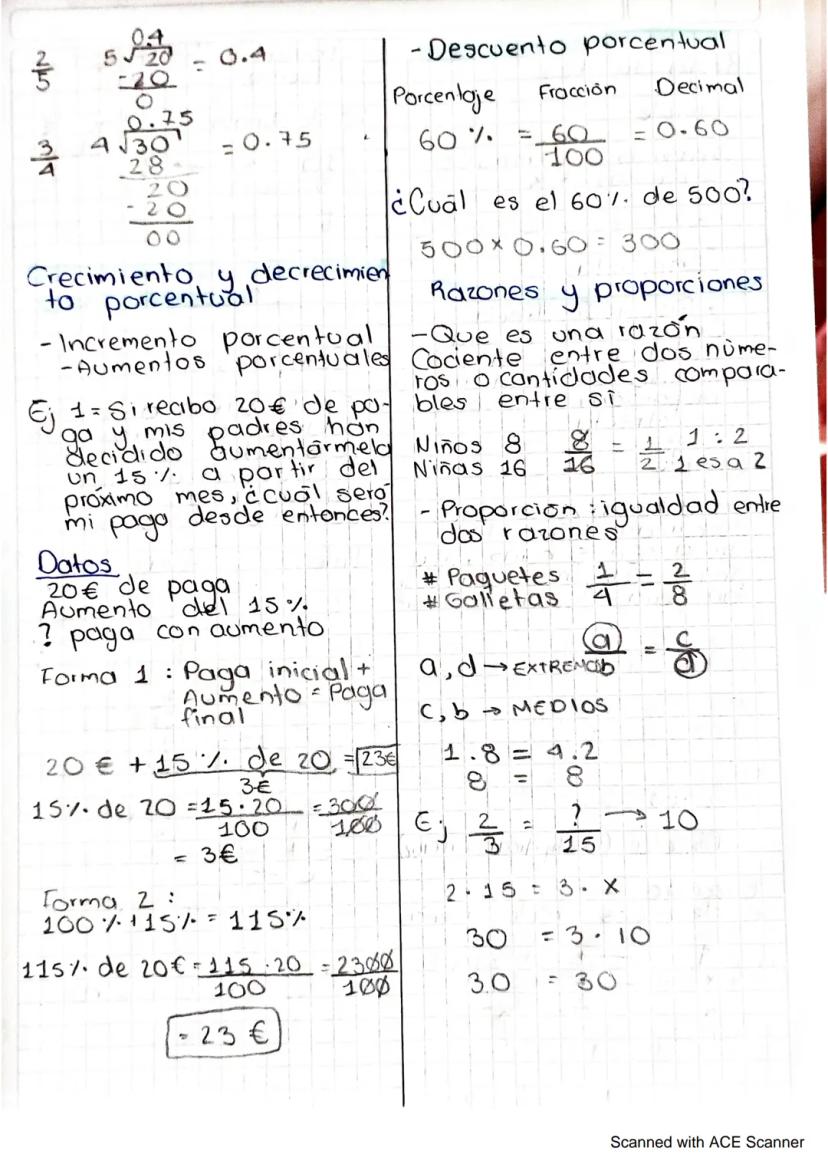 0.4
2/5 5√20 = 0.4
-20
0
0.75
3/4 4√30 = 0.75
28
20
-20
00
Crecimiento y decrecimien
to porcentual
- Incremento porcentual
- Aumentos porcentuales
Ej 1= Si recibo 20€ de pa-
ga y mis padres han
decidido aumentármela
un 15% a partir del
próximo mes, ¿cuál será
mi paga desde entonces?
Datos
20€ de paga
Aumento del 15%
? paga con aumento
Forma 1 : Paga inicial +
Aumento = Paga
final
20 € + 15 % de 20 = 23€
3€
15% de 20 = 15·20/100 = 300/100
= 3€
Forma 2 :
100% + 15% = 115%
115% de 20€ = 115·20/100 = 2300/100
= 23 €
- Descuento porcentual
Porcentaje Fracción Decimal
60 % = 60/100 = 0.60
¿Cuál es el 60% de 500?
500 × 0.60 = 300
Razones y proporciones
- Que es una razón
Cociente entre dos núme-
ros o cantidades compara-
bles entre sí
Niños 8 8/16 = 1/2 1 : 2
Niñas 16 1 es a 2
- Proporción : igualdad entre
dos razones
# Paquetes 1/4 = 2/8
# Galletas
a/b = c/d
a, d → EXTREMOS
c, b → MEDIOS
1 . 8 = 4 . 2
8 = 8
Ej 2/3 = ?/15 → 10
2 · 15 = 3 · x
30 = 3 · 10
30 = 30
Scanned with ACE Scanner